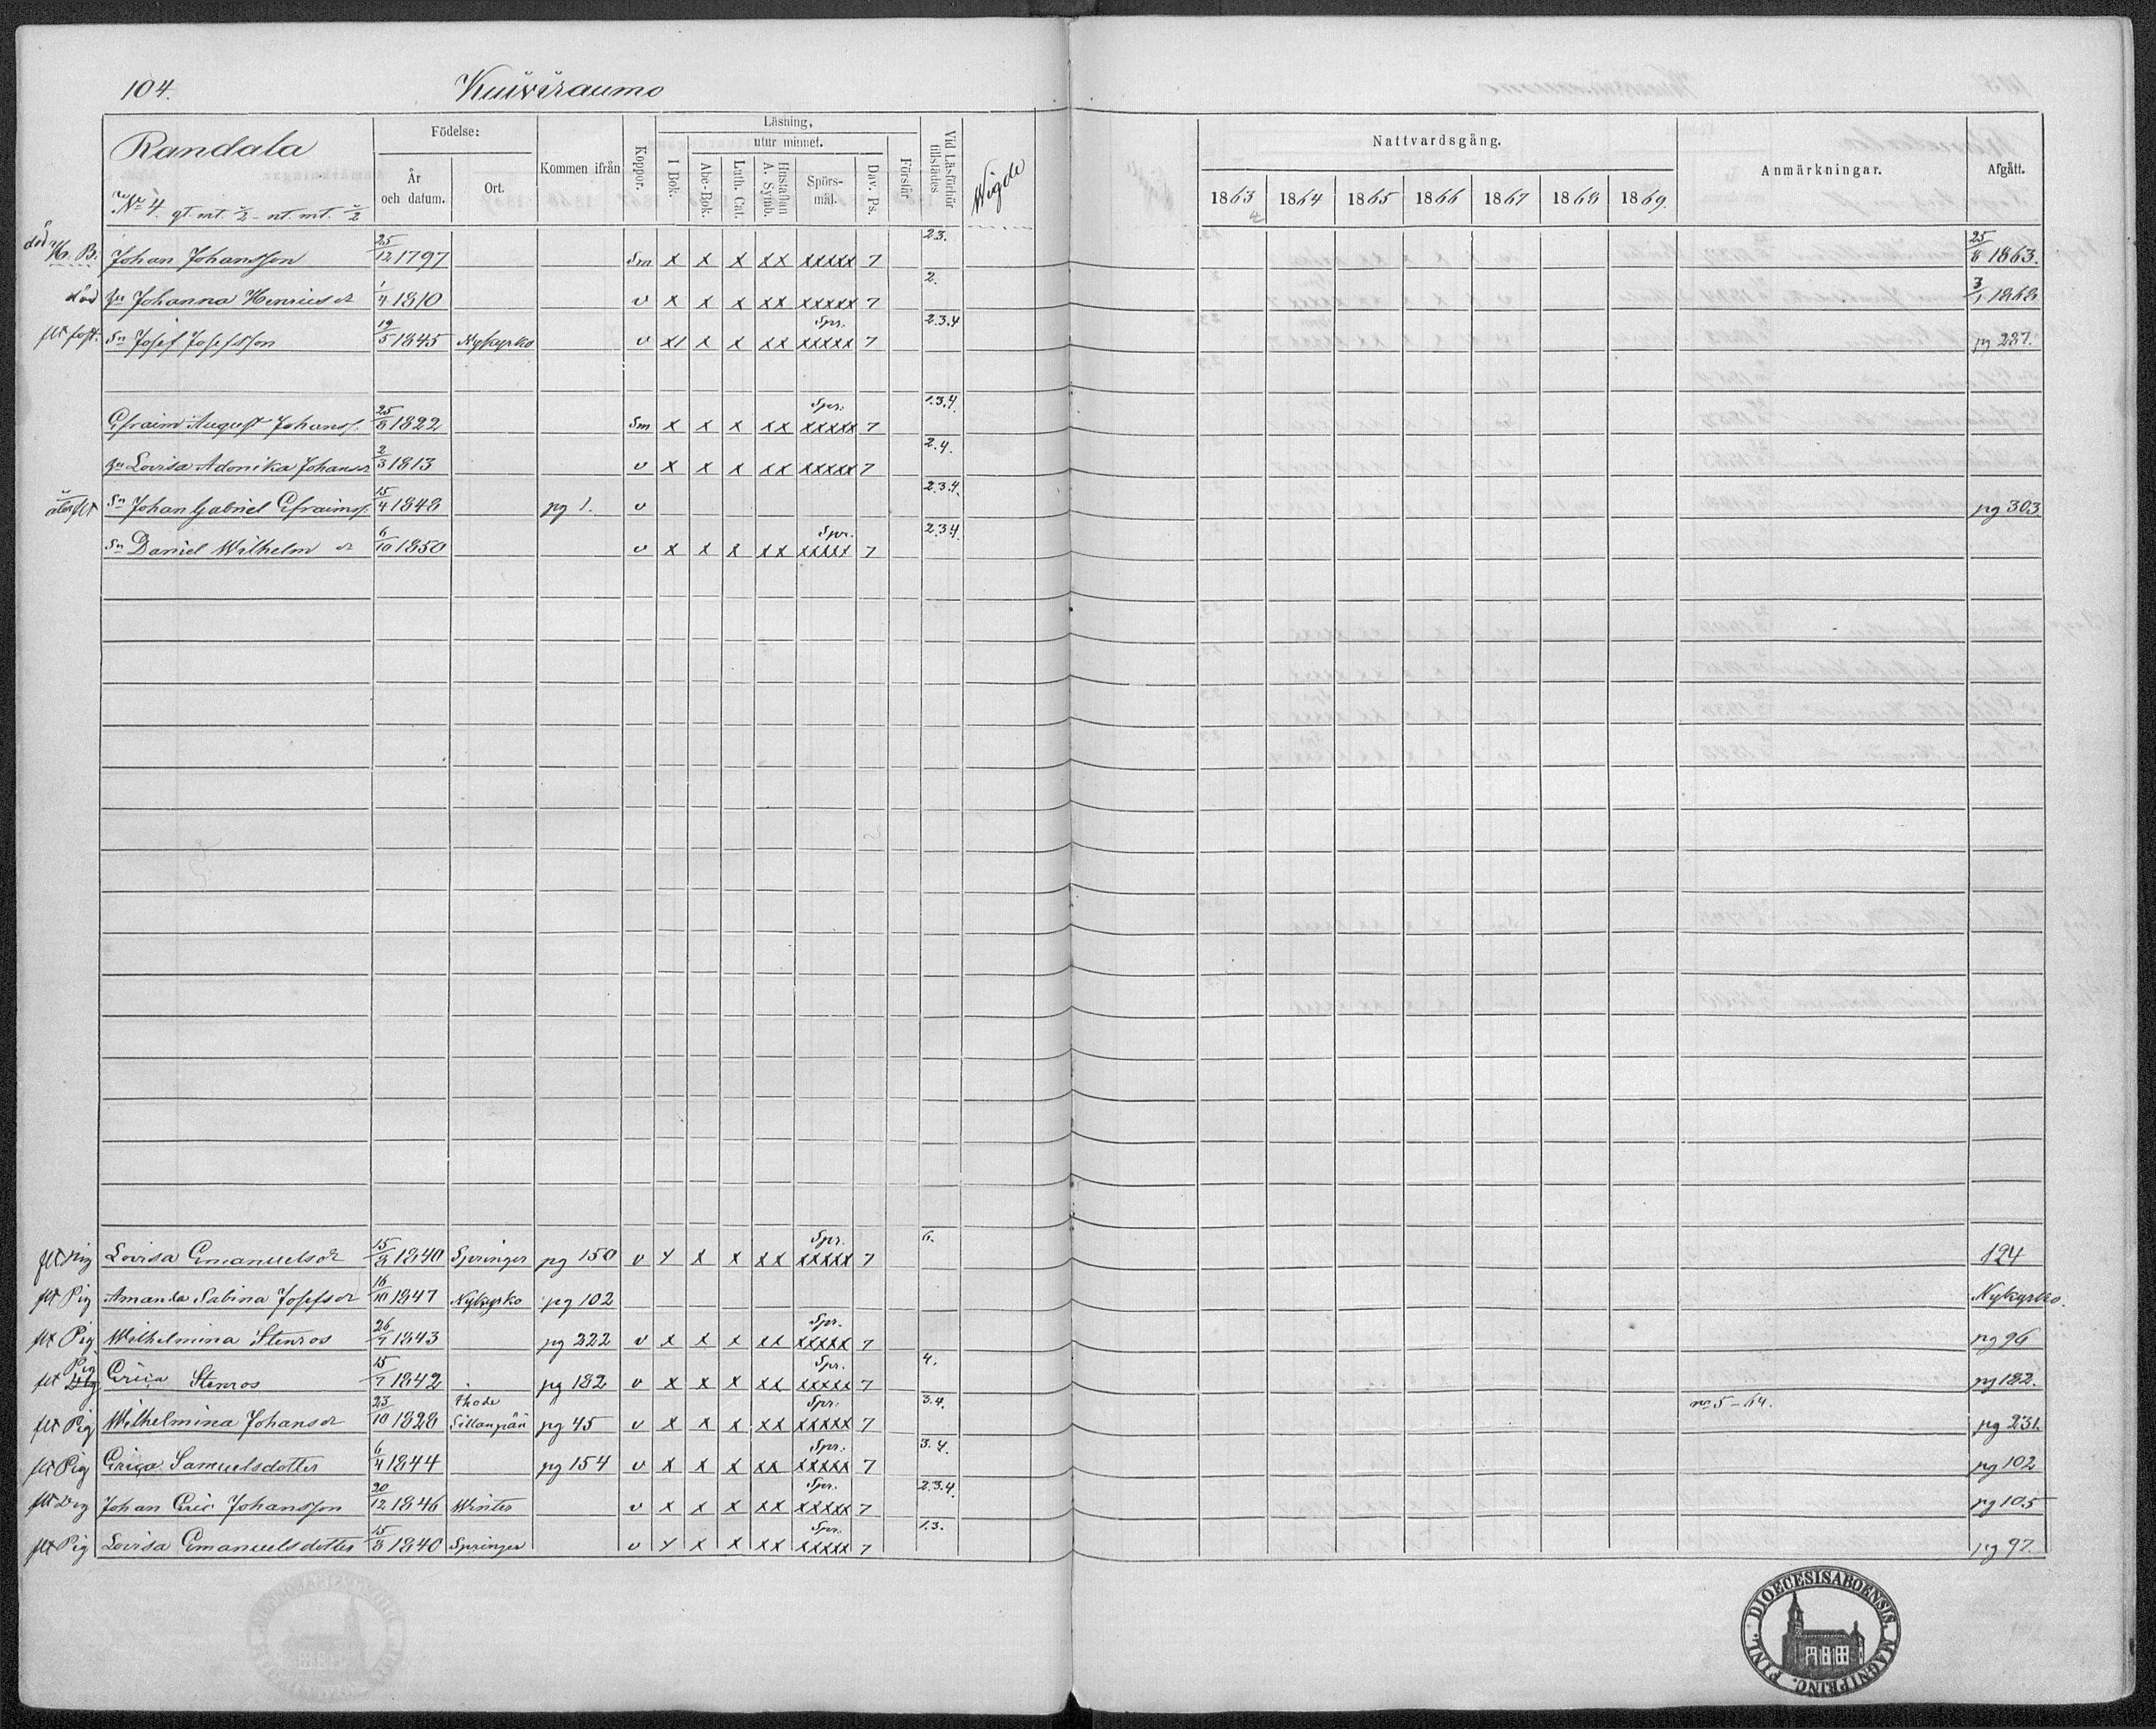 104. Kuivraumo
Randala
No 4. gt. mt. 1/2 - nt. mt. 1/2
Födelse:
År och datum.
Ort.
Kommen ifrån
Koppor.
Läsning,
utur minnet.
I Bok.
Abc-Bok.
Luth. Cat.
Hustaflan A. Symb.
Spörsmål.
Dav. Ps.
Förstår
Vid Läsförhör tillstädes
Wigde
Nattvardsgång.
1863 1864 1865 1866 1867 1868 1869.
Anmärkningar.
Afgått.
död B. Johan Johansson 25/12 1797 Sm x x x xx xxxxx 7 2.3. 25/8 1863.
död hu Johanna Henricsdr 1/4 1810 v x x x xx xxxxx 7 2. 3/1 1868
flt Sn Josef Josefsson 19/5 1845 Nykyrko v x x x xx Spr. xxxxx 7 2.3.4 pg 287.
Efraim August Johanss. 25/8 1822 Sm x x x xx Spr. xxxxx 7 1.3.4.
hu Lovisa Adonika Johansdr 2/3 1813 v x x x xx xxxxx 7 2.4.
flt Sn Johan Gabriel Efraimss. 15/4 1848 pg 1. v 2.3.4. pg 303
Sn Daniel Wilhelm 6/10 1850 v x x x xx Spr. xxxxx 7 2.3.4.
flt Pig Lovisa Emanuelsdr 15/8 1840 Springer pg 150 v x x x xx Spr. xxxxx 7 6. 124
flt Pig Amanda Sabina Josefsdr 16/10 1847 Nykyrko pg 102 Nykyrko.
flt Pig Wilhelmina Stenros 26/1 1843 pg 222 v x x x xx Spr. xxxxx 7 pg 96
flt Pig Erica Stenros 15/7 1842 pg 182 v x x x xx Spr. xxxxx 7 4. pg 182.
flt Pig Wilhelmina Johansdr 23/10 1828 Sillanpää pg 45 v x x x xx Spr. xxxxx 7 3.4. no 5-64. pg 231.
flt Pig Erica Samuelsdotter 6/4 1844 pg 154 v x x x xx Spr. xxxxx 7 3.4. pg 102
flt Drg Johan Eric Johansson 20/12 1846 Winter v x x x xx Spr. xxxxx 7 2.3.4. pg 105
flt Pig Lovisa Emanuelsdotter 15/8 1840 Springer v x x x xx Spr. xxxxx 7 1.3. pg 97.
DIOECESIS ABOENSIS. MAGNI PRINC. FINL.